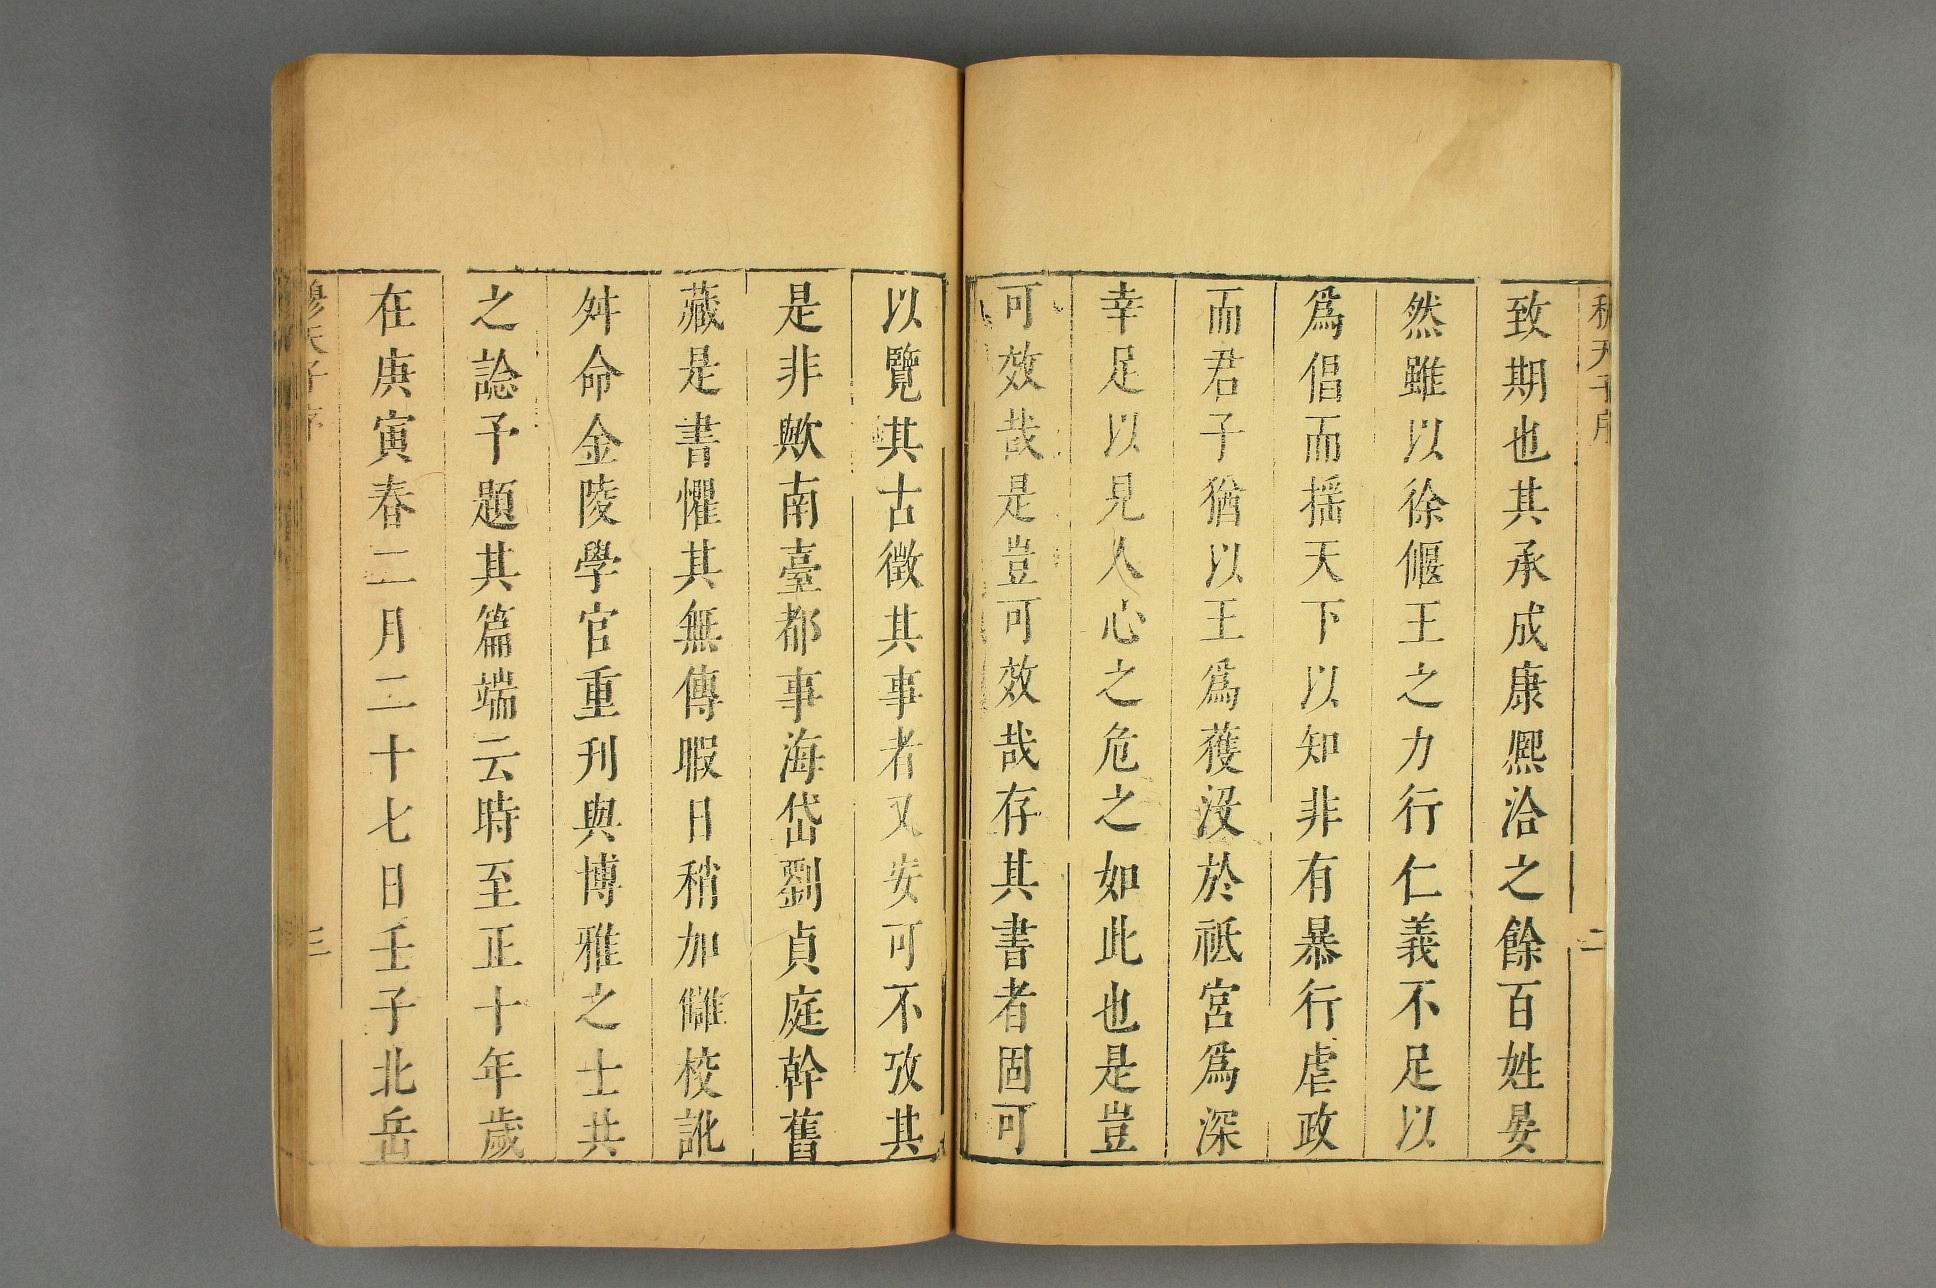 穆天子序
二
致期也其承成康熈洽之餘百姓晏
然雖以徐偃王之力行仁義不足以
爲倡而揺天下以知非有暴行虐政
而君子猶以王爲獲没於祗宮爲深
幸足以見人心之危之如此也是豈
可效哉是豈可效哉存其書者固可
以覽其古徵其事者又安可不攷其
是非歟南臺都事海岱劉貞庭幹舊
藏是書懼其無傳暇日稍加讎校訛
舛命金陵學官重刋與博雅之士共
之諗予題其篇端云時至正十年歲
在庚寅春二月二十七日壬子北岳
穆天子序
三